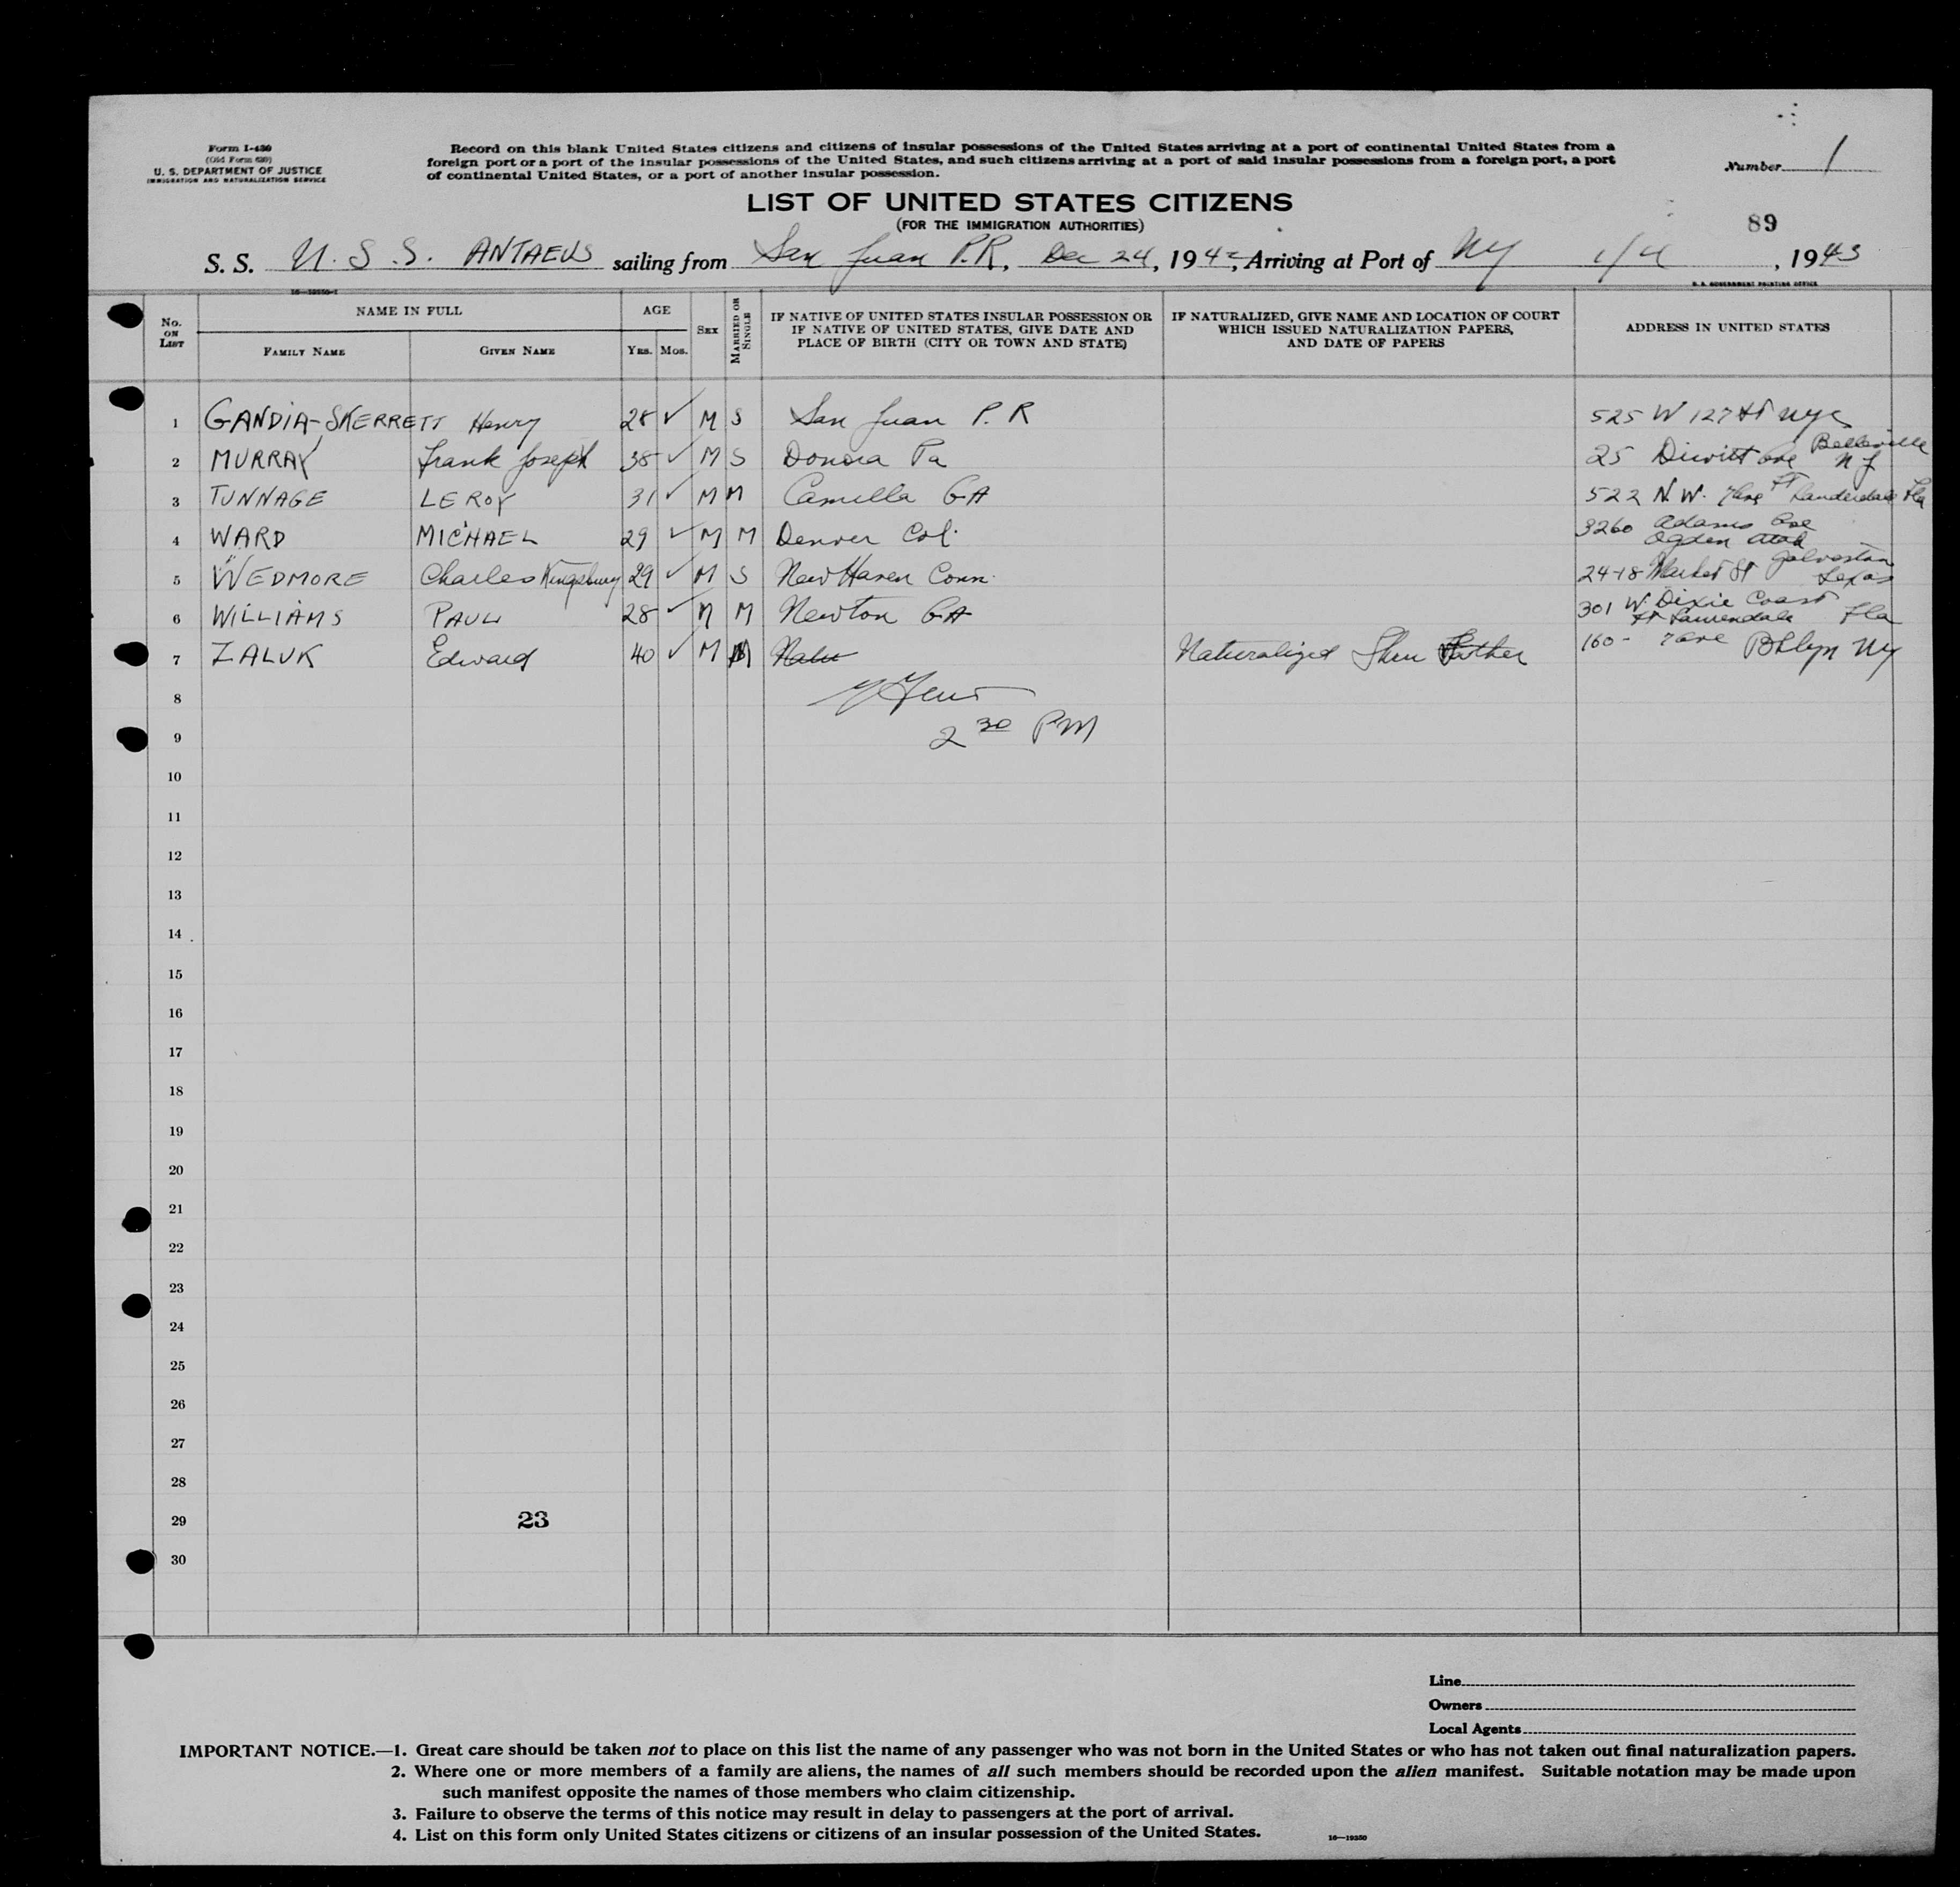 Form I-430
(Old Form 630)
U. S. DEPARTMENT OF JUSTICE
IMMIGRATION AND NATURALIZATION SERVICE
Record on this blank United States citizens and citizens of insular possessions of the United States arriving at a port of continental United States from a
foreign port or a port of the insular possessions of the United States, and such citizens arriving at a port of said insular possessions from a foreign port, a port
of continental United States, or a port of another insular possession.
Number 1
LIST OF UNITED STATES CITIZENS
(FOR THE IMMIGRATION AUTHORITIES)
89
S. S. U. S. S. ANTAEUS sailing from San Juan P.R, Dec 24, 1942, Arriving at Port of NY 1/4, 1943
16—19350-1
U. S. GOVERNMENT PRINTING OFFICE
No. ON LIST
NAME IN FULL
FAMILY NAME
GIVEN NAME
AGE
YRS. MOS.
SEX
MARRIED OR SINGLE
IF NATIVE OF UNITED STATES INSULAR POSSESSION OR
IF NATIVE OF UNITED STATES, GIVE DATE AND
PLACE OF BIRTH (CITY OR TOWN AND STATE)
IF NATURALIZED, GIVE NAME AND LOCATION OF COURT
WHICH ISSUED NATURALIZATION PAPERS,
AND DATE OF PAPERS
ADDRESS IN UNITED STATES
1 GANDIA-SKERRETT Henry 28 ✓ M S San Juan P. R 525 W 127 St NYC
2 MURRAY Frank Joseph 38 ✓ M S Donora Pa 25 Dewitt ave Belleville N J
3 TUNNAGE LEROY 31 ✓ M M Camilla GA 522 N. W. 7 ave Ft Lauderdale Fla
4 WARD MICHAEL 29 ✓ M M Denver Col. 3260 Adams Ave Ogden Utah
5 WEDMORE Charles Kingsbury 29 ✓ M S New Haven Conn. 2418 Market St Galveston Texas
6 WILLIAMS PAUL 28 ✓ M M Newton GA 301 W. Dixie Coast Ft Lauderdale Fla
7 ZALUK Edward 40 ✓ M M Naturalized Thru Father 160 - 7 ave Bklyn NY
8
2 30 PM
9
10
11
12
13
14
15
16
17
18
19
20
21
22
23
24
25
26
27
28
29 23
30
Line
Owners
Local Agents
IMPORTANT NOTICE.—1. Great care should be taken not to place on this list the name of any passenger who was not born in the United States or who has not taken out final naturalization papers.
2. Where one or more members of a family are aliens, the names of all such members should be recorded upon the alien manifest. Suitable notation may be made upon
such manifest opposite the names of those members who claim citizenship.
3. Failure to observe the terms of this notice may result in delay to passengers at the port of arrival.
4. List on this form only United States citizens or citizens of an insular possession of the United States.
16—19350